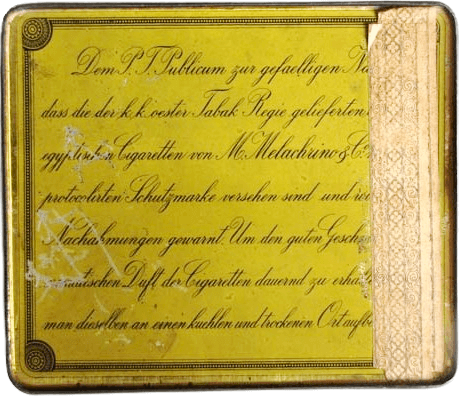 Dem P. T. Publicum zur gefaelligen Na
dass die der k. k. oester. Tabak Regie gelieferten
egyptischen Cigaretten von M. Melachrino & C.
protocolirten Schutzmarke versehen sind und
Nachahmungen gewarnt. Um den guten Geschm
Duft der Cigaretten dauernd zu erha
man dieselben an einen kuehlen und trockenen Ort aufb